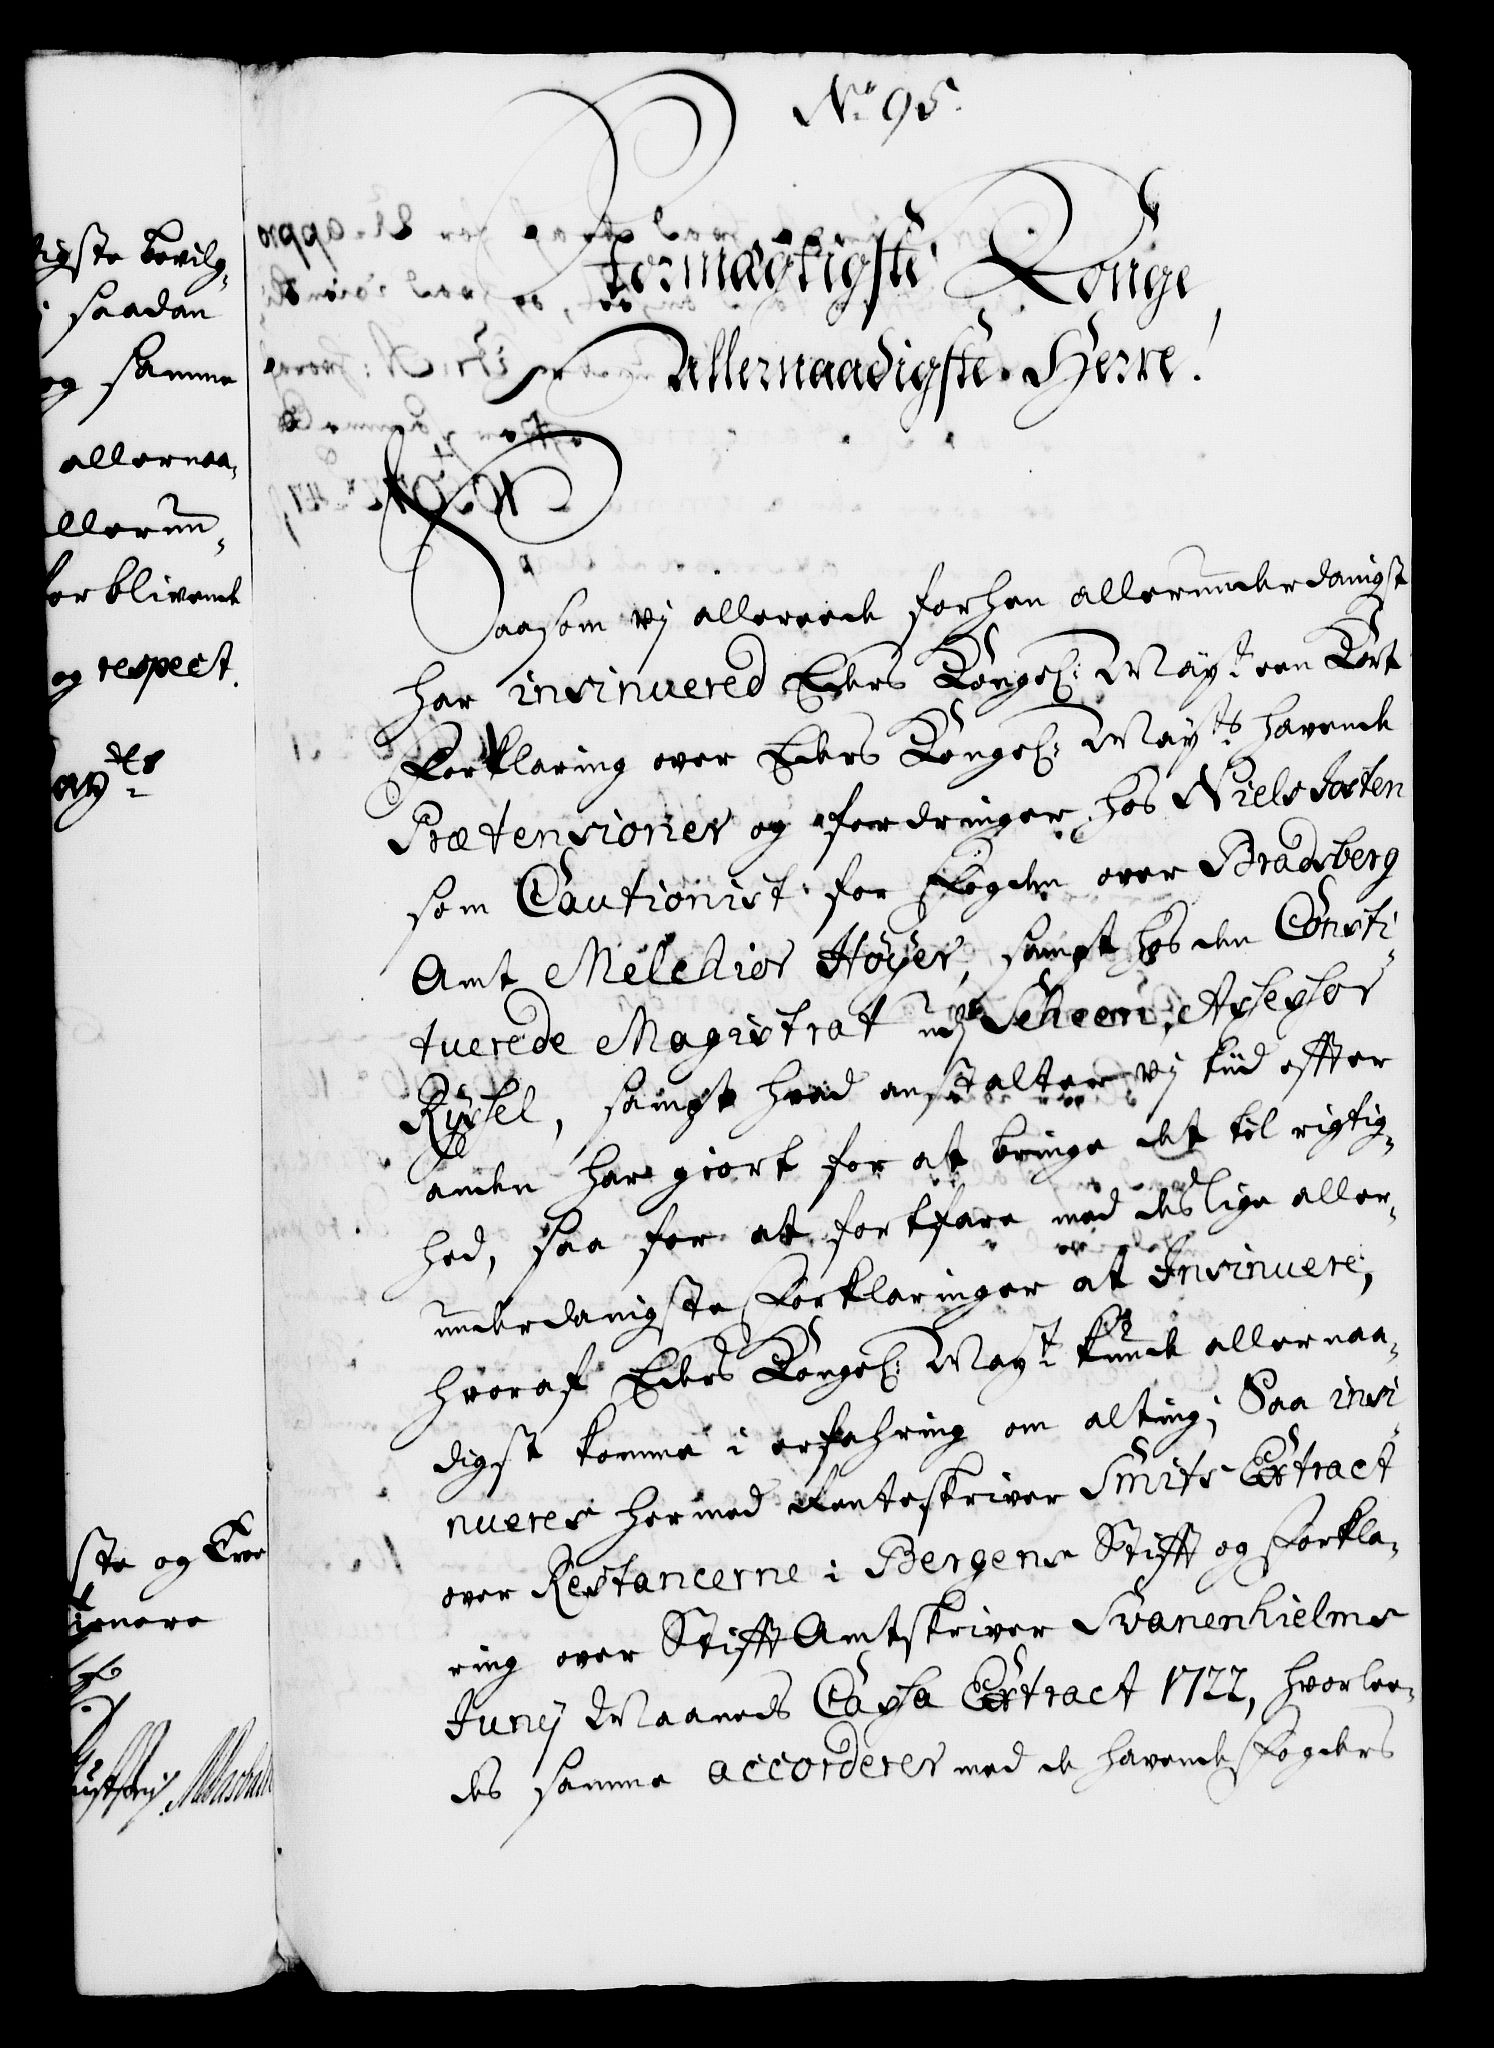 No 95.
Stormægtigste Konge,
Allernaadigste Herre!
Saasom vj allereede forhen allerunderdanigst
har insinuered Eders Kongel: May:t een Kort
Forklaring over Eders Kongel: May:ts havende
Prætensioner og fordringer hos Niels Josten
som Cautionist for Fogden over Bradsberg
Amt Melchior Høyer, sampt hos den Consti-
tuerede Magistrat udj Scheen, Assessor
Ryssel, sampt hvad anstalter vj tiid effter
anden har giort for at bringe det til rigtig-
hed, saa for at fortfare med deslige aller-
underdanigste Forklaringer at Insinuere,
hvoraf Eders Kongel: May:t kunde allernaa-
digst komme i erfahring om alting; Saa insi-
nueres hermed Renteskriver Smits Extract
over Restancerne i Bergens Stifft og Forkla-
ring over StifftAmtskriver Svanenhielms
Junij Maaneds Cassa Extract 1722, hvorlee-
des samme accorderer med de havende Fogders
igste bevilg-
saadan
og samme
allernaa-
llerun-
forblivende
og respect.
ay:ts
ste og Troe
tienere